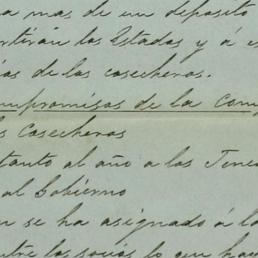 a mas de un deposito
rtirán los Estados y á e
ias de los cosecheros.
ompromisos de la Com
s Cosecheros
tanto al año a los Tene
al Gobierno
n se ha asignado á l
ntre los socios lo que hay